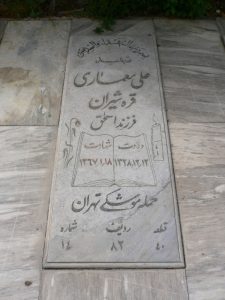 شهید
علی معماری
قره شیران
فرزند اسحق
ولادت شهادت
۱۳۲۸،۱۲،۱۲ ۱۳۶۷،۱،۱۸
حمله موشکی تهران
قطعه ردیف شماره
۴۰ ۸۲ ۱۴